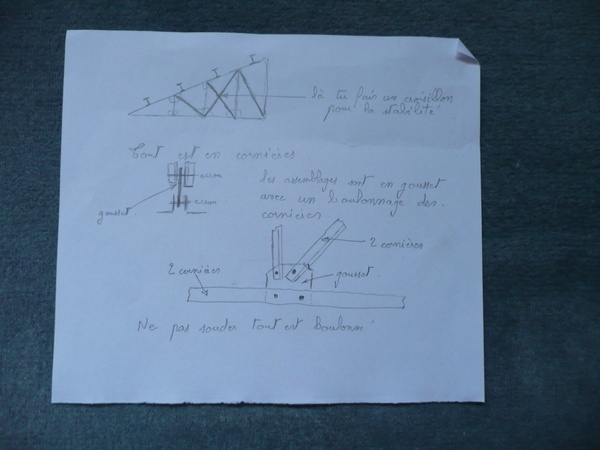 là tu fais un croisillon
pour la stabilité
Tout est en cornières
écrou
écrou
gousset
les assemblages sont en gousset
avec un boulonnage des
cornières
2 cornières
2 cornières
gousset
Ne pas souder tout est boulonné